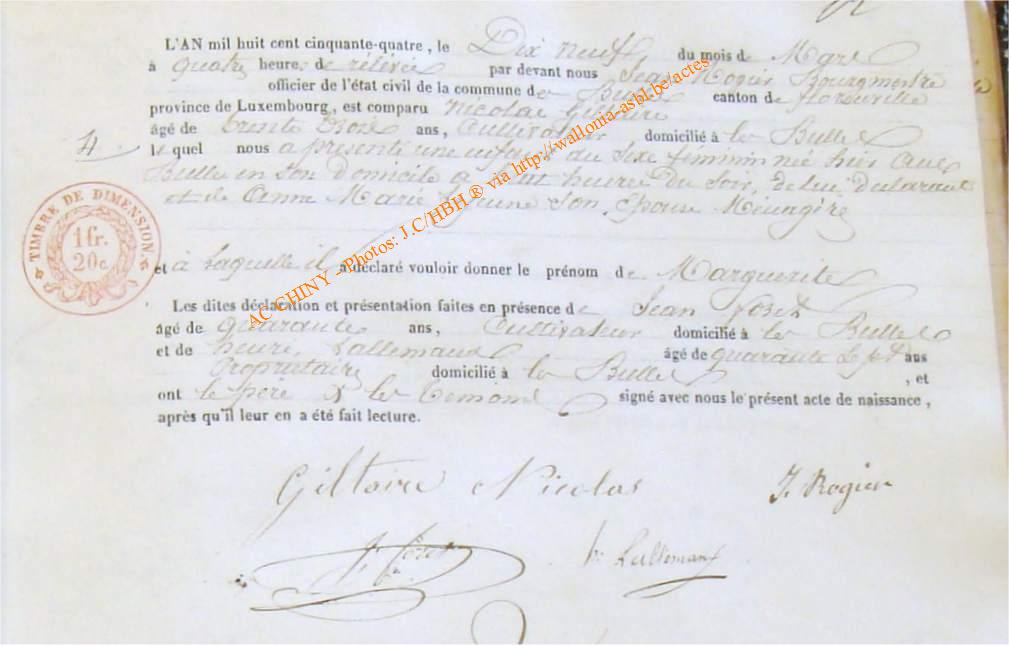 L'AN mil huit cent cinquante-quatre, le Dix neuf du mois de Mars
à quatre heures de relevée par devant nous Jean Rogier Bourgmestre
officier de l'état civil de la commune de canton de florenville
province de Luxembourg, est comparu Nicolas Giltaire
âgé de trente trois ans, Cultivateur domicilié à les Bulles
4 le quel nous a présenté une enfant du sexe féminin née hier aux
Bulles en son Domicile à huit heures du soir, de lui déclarant
et de Anne Marie son épouse Ménagère
TIMBRE DE DIMENSION.
1 fr.
20 c.
et à laquelle il a déclaré vouloir donner le prénom de Marguerite
Les dites déclaration et présentation faites en présence de Jean
âgé de quarante ans, Cultivateur domicilié à les Bulles
et de henri Lallemand âgé de quarante ans
Propriétaire domicilié à les Bulles, et
ont le père & les témoins signé avec nous le présent acte de naissance,
après qu'il leur en a été fait lecture.
Giltaire Nicolas J. Rogier
h. Lallemand
AC CHINY - Photos: J.C/HBH ® via http://wallonia-asbl.be/actes